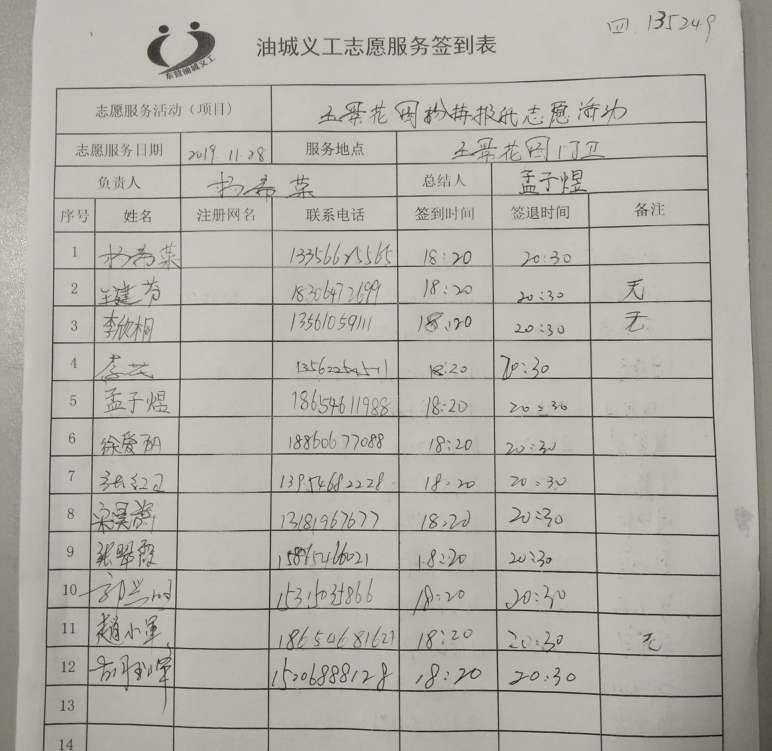 四 135249
东营油城义工
油城义工志愿服务签到表
志愿服务活动（项目） 王葬花园扮拣报纸志愿活动
志愿服务日期 2019.11.28 服务地点 门卫
负责人 杨希菜 总结人 孟子煜
序号 姓名 注册网名 联系电话 签到时间 签退时间 备注
1 杨希菜 18:20 20:30
2 18306472699 18:20 20:30 无
3 李欣桐 13561059111 18:20 20:30 无
4 18:20 20:30
5 孟子煜 18654611988 18:20 20:30
6 徐爱 18860677088 18:20 20:30
7 13954682228 18:20 20:30
8 13181967677 18:20 20:30
9 张翠霞 18:20 20:30
10 18:20 20:30
11 赵小军 18654681621 18:20 20:30 无
12 15206888128 18:20 20:30
13
14